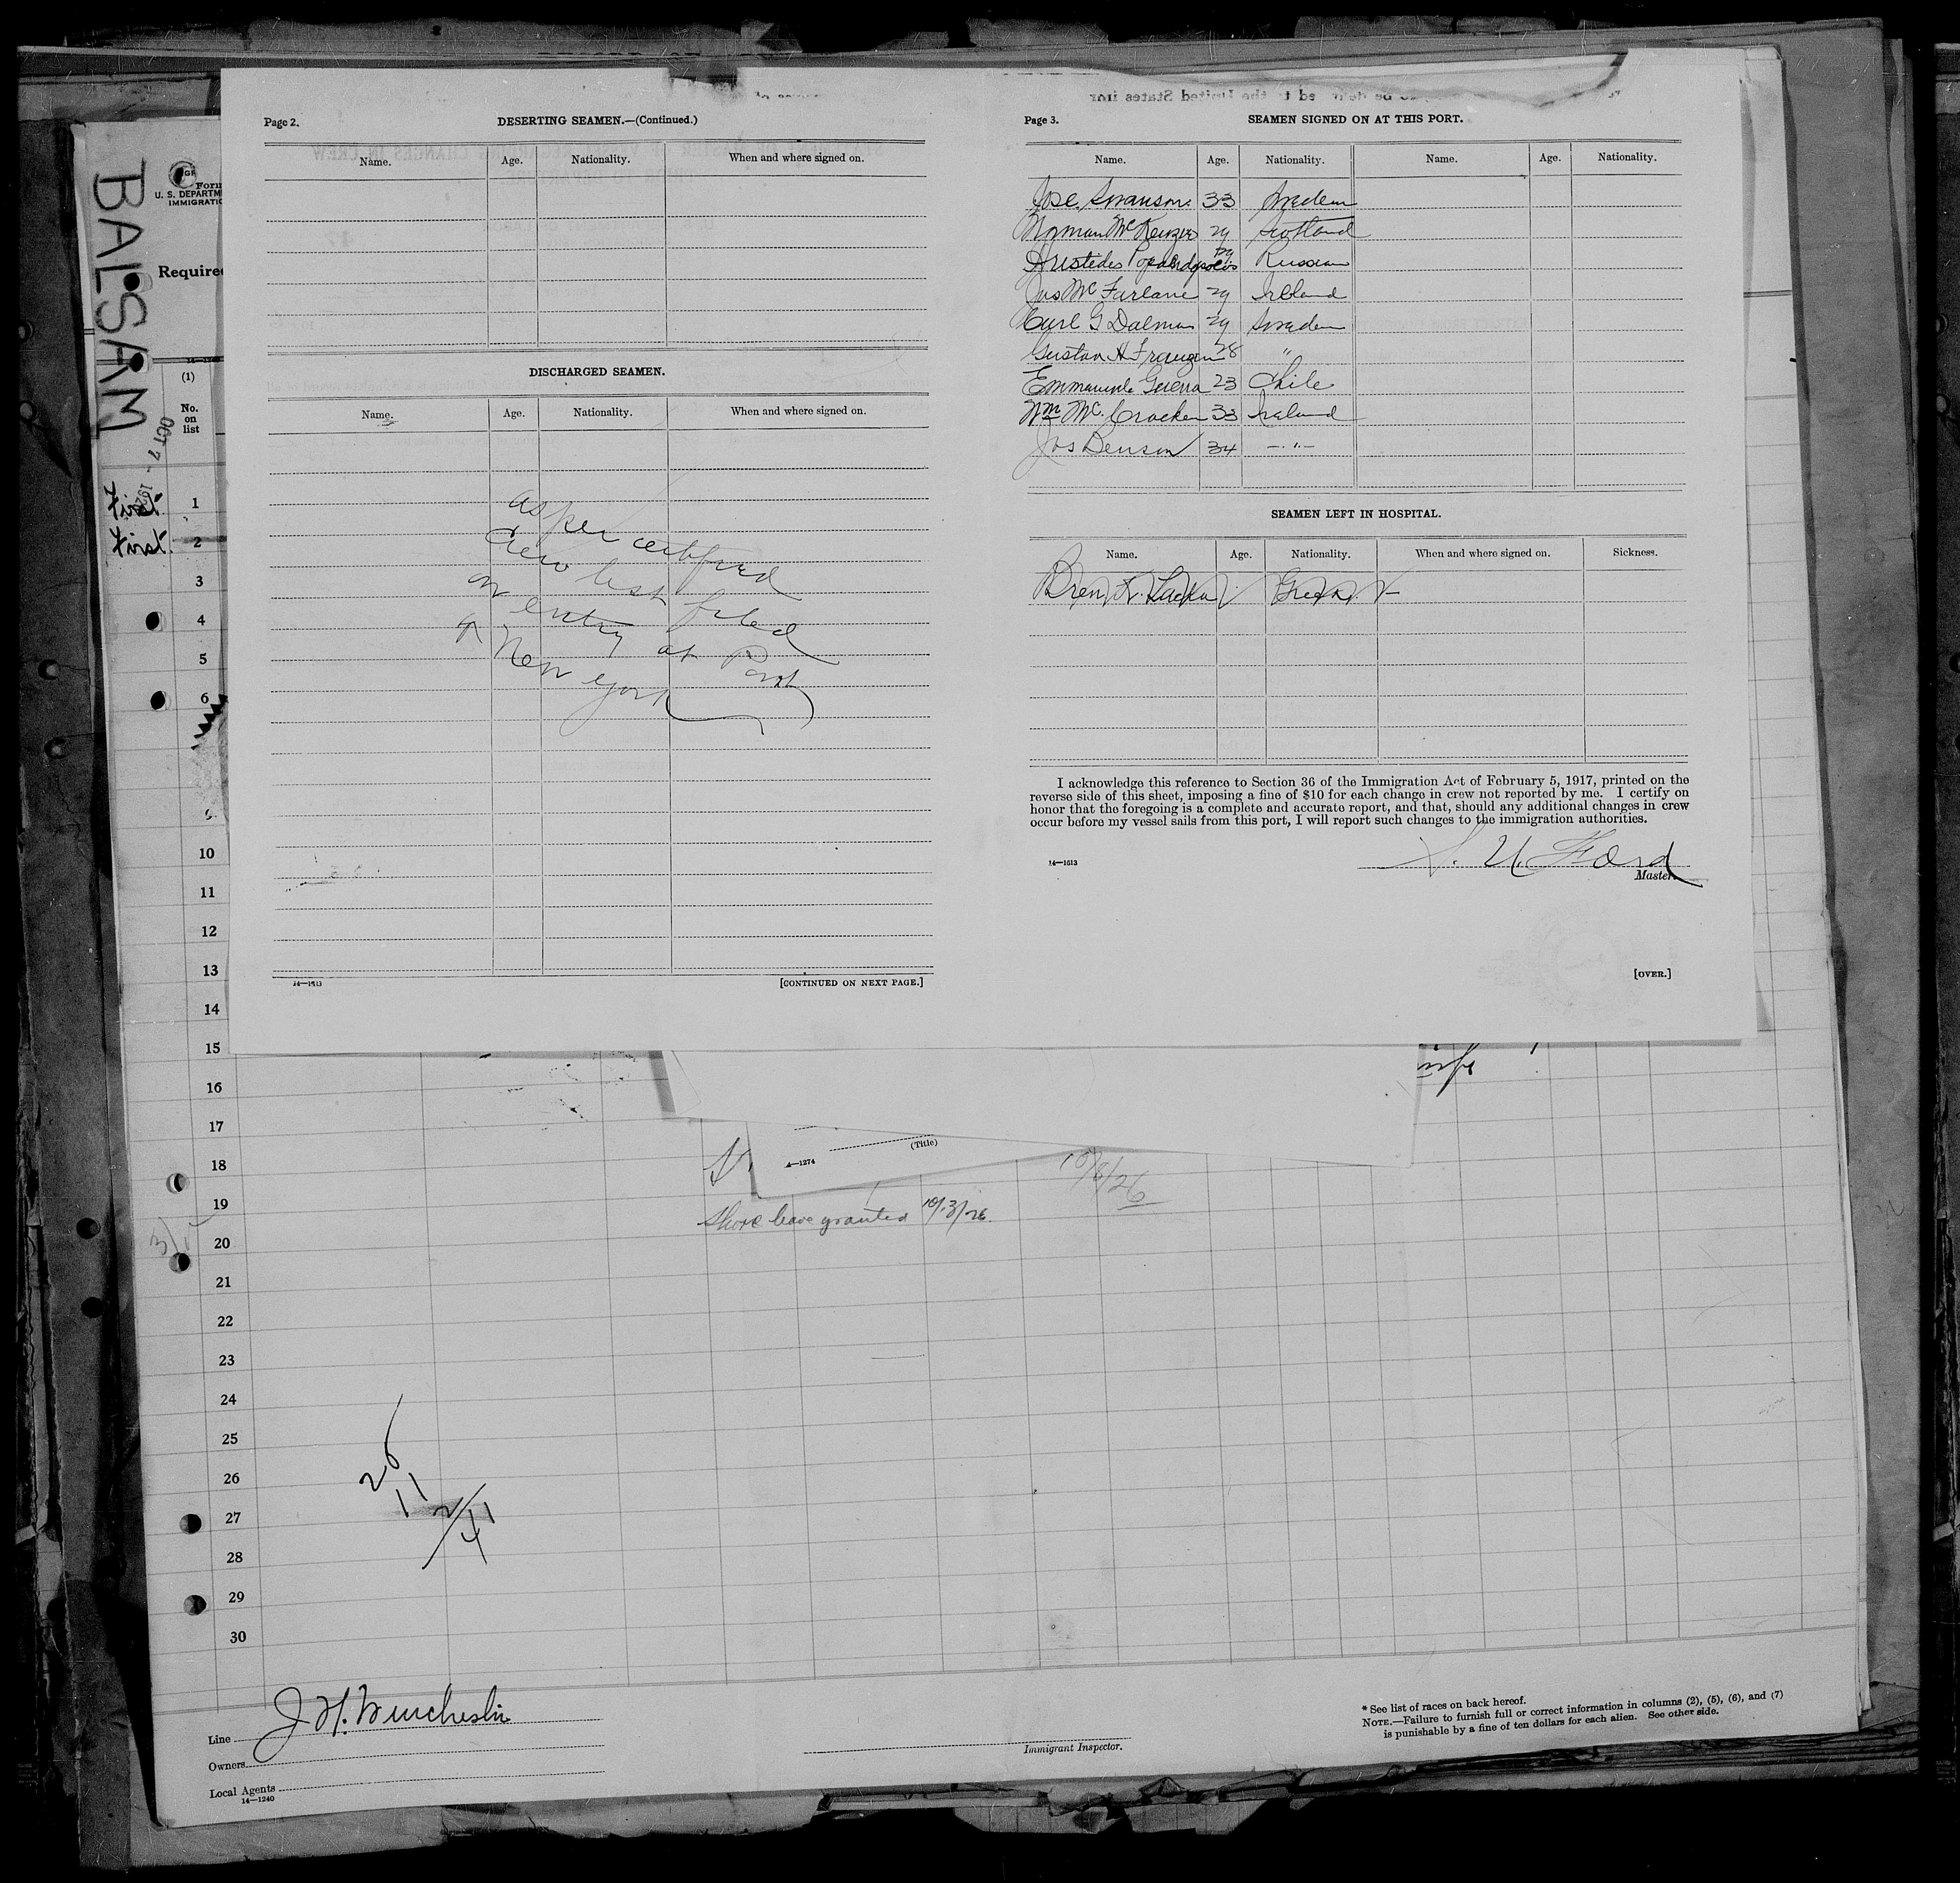 BALSAM
OCT 7 - 192
Form
U. S. DEPARTM
IMMIGRATIO
Require
(1)
No.
on
list
First. 1
First. 2
3
4
5
6
9
10
11
12
13
14
15
16
17
18
19
20
21
22
23
24
25
26
27
28
29
30
Page 2.
DESERTING SEAMEN.—(Continued.)
Name. Age. Nationality. When and where signed on.
DISCHARGED SEAMEN.
Name. Age. Nationality. When and where signed on.
as per certified
Crew list filed
on entry at Port
New York
14—1613
[CONTINUED ON NEXT PAGE.]
Page 3.
SEAMEN SIGNED ON AT THIS PORT.
Name. Age. Nationality. Name. Age. Nationality.
Jos. Swanson. 33 Sweden
Norman McKenzie 29 Scotland
Aristedes 29 Russian
Jas McFarlane 29 Ireland
Carl G Dalman 29 Sweden
Gustav A Franzen 28 "
Emmanuele Guerra 23 Chile
Wm Mc.Cracken 33 Ireland
Jos Benson 34 -"-
SEAMEN LEFT IN HOSPITAL.
Name. Age. Nationality. When and where signed on. Sickness.
I acknowledge this reference to Section 36 of the Immigration Act of February 5, 1917, printed on the
reverse side of this sheet, imposing a fine of $10 for each change in crew not reported by me. I certify on
honor that the foregoing is a complete and accurate report, and that, should any additional changes in crew
occur before my vessel sails from this port, I will report such changes to the immigration authorities.
14—1613
Ford
Master.
[OVER.]
(Title)
10/8/26
Shore leave granted 10/3/26.
26
11
2/41
Line J H. Winchester
Owners
Local Agents
14—1240
Immigrant Inspector.
* See list of races on back hereof.
NOTE.—Failure to furnish full or correct information in columns (2), (5), (6), and (7)
is punishable by a fine of ten dollars for each alien. See other side.